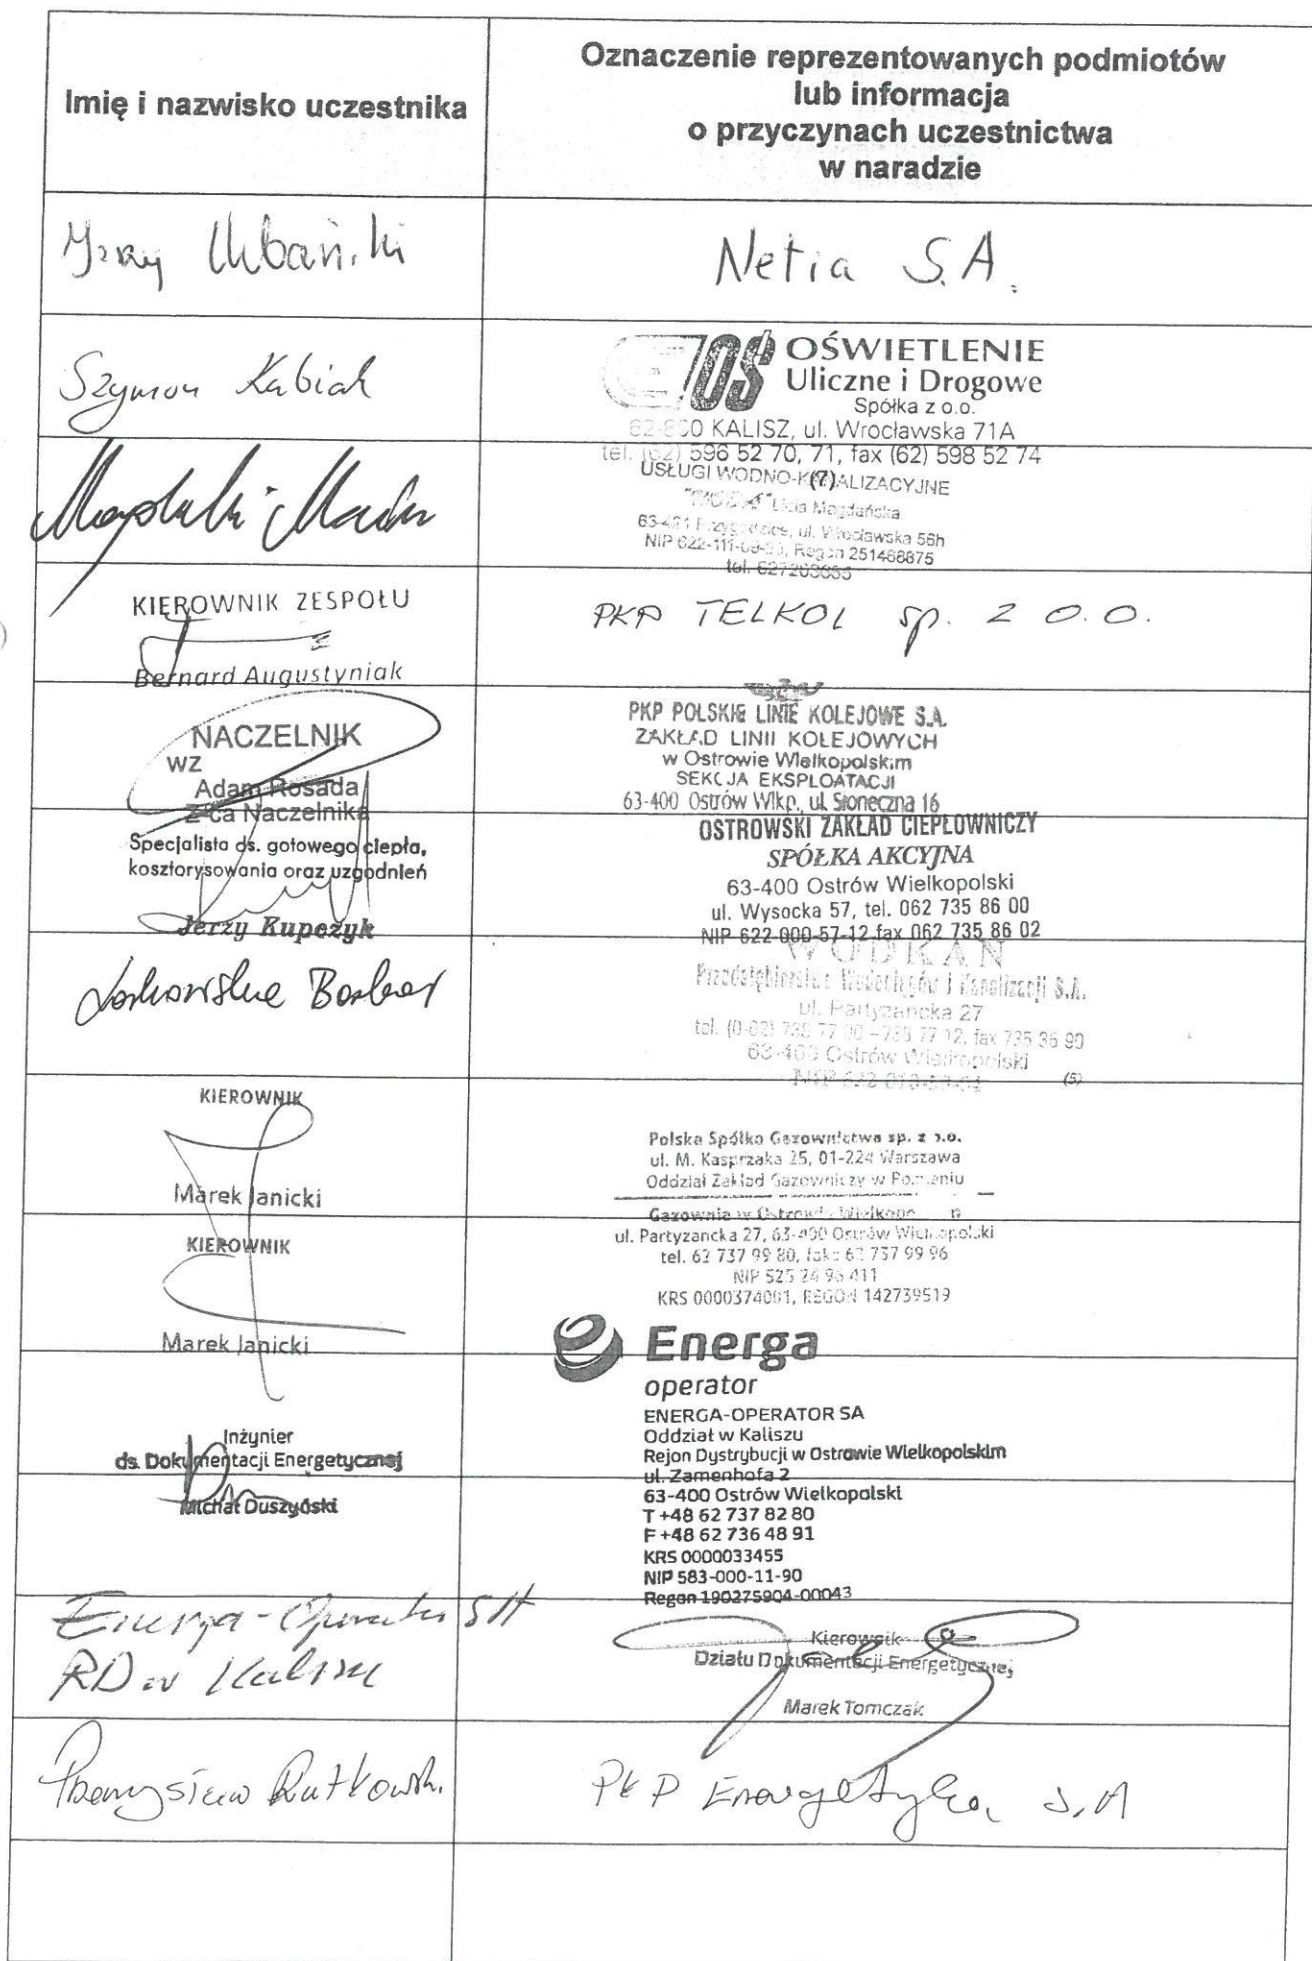 Imię i nazwisko uczestnika
Oznaczenie reprezentowanych podmiotów
lub informacja
o przyczynach uczestnictwa
w naradzie
Netia S.A.
Szymon Kubiak
OŚ OŚWIETLENIE
Uliczne i Drogowe
Spółka z o.o.
62-800 KALISZ, ul. Wrocławska 71A
tel. (62) 596 52 70, 71, fax (62) 598 52 74
(7)
USŁUGI WODNO-KANALIZACYJNE
Magdańska
63-421 Przygodzice, ul. Wrocławska 56h
Regon 251468875
KIEROWNIK ZESPOŁU
Bernard Augustyniak
PKP TELKOL sp. z o.o.
NACZELNIK
WZ
Adam Rosada
Z-ca Naczelnika
PKP POLSKIE LINIE KOLEJOWE S.A.
ZAKŁAD LINII KOLEJOWYCH
w Ostrowie Wielkopolskim
SEKCJA EKSPLOATACJI
63-400 Ostrów Wlkp., ul. Słoneczna 16
Specjalista ds. gotowego ciepła,
kosztorysowania oraz uzgodnień
Jerzy Kupczyk
OSTROWSKI ZAKŁAD CIEPŁOWNICZY
SPÓŁKA AKCYJNA
63-400 Ostrów Wielkopolski
ul. Wysocka 57, tel. 062 735 86 00
NIP 622-000-57-12 fax 062 735 86 02
WODKAN
Przedsiębiorstwo Wodociągów i Kanalizacji S.A.
ul. Partyzancka 27
fax 735 35 90
63-400 Ostrów Wielkopolski
(5)
KIEROWNIK
Marek Janicki
Polska Spółka Gazownictwa sp. z o.o.
ul. M. Kasprzaka 25, 01-224 Warszawa
Oddział Zakład Gazowniczy w Poznaniu
KIEROWNIK
Marek Janicki
Gazownia w Ostrowie
ul. Partyzancka 27, 63-400 Ostrów Wielkopolski
tel. 62 737 99 80, faks 62 737 99 96
NIP 525 24 96 411
KRS 0000374001, REGON 142739519
Inżynier
ds. Dokumentacji Energetycznej
Michał Duszyński
Energa
operator
ENERGA-OPERATOR SA
Oddział w Kaliszu
Rejon Dystrybucji w Ostrowie Wielkopolskim
ul. Zamenhofa 2
63-400 Ostrów Wielkopolski
T +48 62 737 82 80
F +48 62 736 48 91
KRS 0000033455
NIP 583-000-11-90
Regon 190275904-00043
Energa-Operator SA
RD w Kaliszu
Kierownik
Działu Dokumentacji Energetycznej
Marek Tomczak
Przemysław Rutkowski
PKP Energetyka S.A